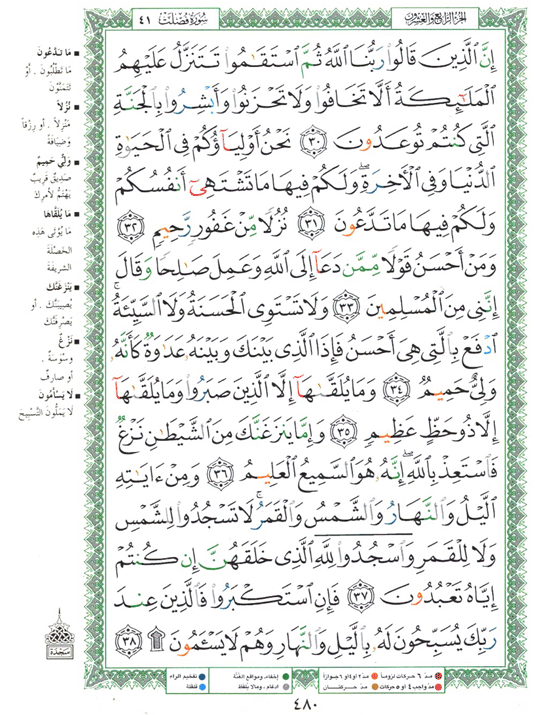 الجزء الرابع والعشرون
سورة فصلت ٤١
إِنَّ ٱلَّذِينَ قَالُوا۟ رَبُّنَا ٱللَّهُ ثُمَّ ٱسْتَقَٰمُوا۟ تَتَنَزَّلُ عَلَيْهِمُ
ٱلْمَلَٰٓئِكَةُ أَلَّا تَخَافُوا۟ وَلَا تَحْزَنُوا۟ وَأَبْشِرُوا۟ بِٱلْجَنَّةِ
ٱلَّتِى كُنتُمْ تُوعَدُونَ ٣٠ نَحْنُ أَوْلِيَآؤُكُمْ فِى ٱلْحَيَوٰةِ
ٱلدُّنْيَا وَفِى ٱلْءَاخِرَةِ ۖ وَلَكُمْ فِيهَا مَا تَشْتَهِىٓ أَنفُسُكُمْ
وَلَكُمْ فِيهَا مَا تَدَّعُونَ ٣١ نُزُلًا مِّنْ غَفُورٍ رَّحِيمٍ ٣٢
وَمَنْ أَحْسَنُ قَوْلًا مِّمَّن دَعَآ إِلَى ٱللَّهِ وَعَمِلَ صَٰلِحًا وَقَالَ
إِنَّنِى مِنَ ٱلْمُسْلِمِينَ ٣٣ وَلَا تَسْتَوِى ٱلْحَسَنَةُ وَلَا ٱلسَّيِّئَةُ ۚ
ٱدْفَعْ بِٱلَّتِى هِىَ أَحْسَنُ فَإِذَا ٱلَّذِى بَيْنَكَ وَبَيْنَهُۥ عَدَٰوَةٌ كَأَنَّهُۥ
وَلِىٌّ حَمِيمٌ ٣٤ وَمَا يُلَقَّىٰهَآ إِلَّا ٱلَّذِينَ صَبَرُوا۟ وَمَا يُلَقَّىٰهَآ
إِلَّا ذُو حَظٍّ عَظِيمٍ ٣٥ وَإِمَّا يَنزَغَنَّكَ مِنَ ٱلشَّيْطَٰنِ نَزْغٌ
فَٱسْتَعِذْ بِٱللَّهِ ۖ إِنَّهُۥ هُوَ ٱلسَّمِيعُ ٱلْعَلِيمُ ٣٦ وَمِنْ ءَايَٰتِهِ
ٱلَّيْلُ وَٱلنَّهَارُ وَٱلشَّمْسُ وَٱلْقَمَرُ ۚ لَا تَسْجُدُوا۟ لِلشَّمْسِ
وَلَا لِلْقَمَرِ وَٱسْجُدُوا۟ لِلَّهِ ٱلَّذِى خَلَقَهُنَّ إِن كُنتُمْ
إِيَّاهُ تَعْبُدُونَ ٣٧ فَإِنِ ٱسْتَكْبَرُوا۟ فَٱلَّذِينَ عِندَ
رَبِّكَ يُسَبِّحُونَ لَهُۥ بِٱلَّيْلِ وَٱلنَّهَارِ وَهُمْ لَا يَسْـَٔمُونَ ۩ ٣٨
مَا تَدَّعُونَ
مَا تَطْلُبُونَ . أَوْ
تَتَمَنَّوْنَ
نُزُلاً
مَنْزِلاً . أو رِزْقاً
وَضِيَافَةً
وَلِيٌّ حَمِيمٌ
صَدِيقٌ قَرِيبٌ
يَهْتَمُّ لأمرِكَ
مَا يُلَقَّاهَا
مَا يُؤْتَى هَذِهِ
الخَصْلَةَ
الشريفَةَ
يَنْزَغَنَّكَ
يُصِيبَنَّكَ . أو
يَصْرِفَنَّكَ
نَزْغٌ
وَسْوَسَةٌ .
أو صارِفٌ
لَا يَسْأَمُونَ
لَا يَمَلُّونَ التَّسْبِيحَ
سَجْدَة
مدّ ٦ حركات لزوماً
مدّ ٢ أو ٤ أو ٦ جوازاً
إخفاء، ومواقع الغنّة
تفخيم الراء
مدّ واجب ٤ أو ٥ حركات
مدّ حركتان
ادغام، وما لا يلفظ
قلقلة
٤٨٠